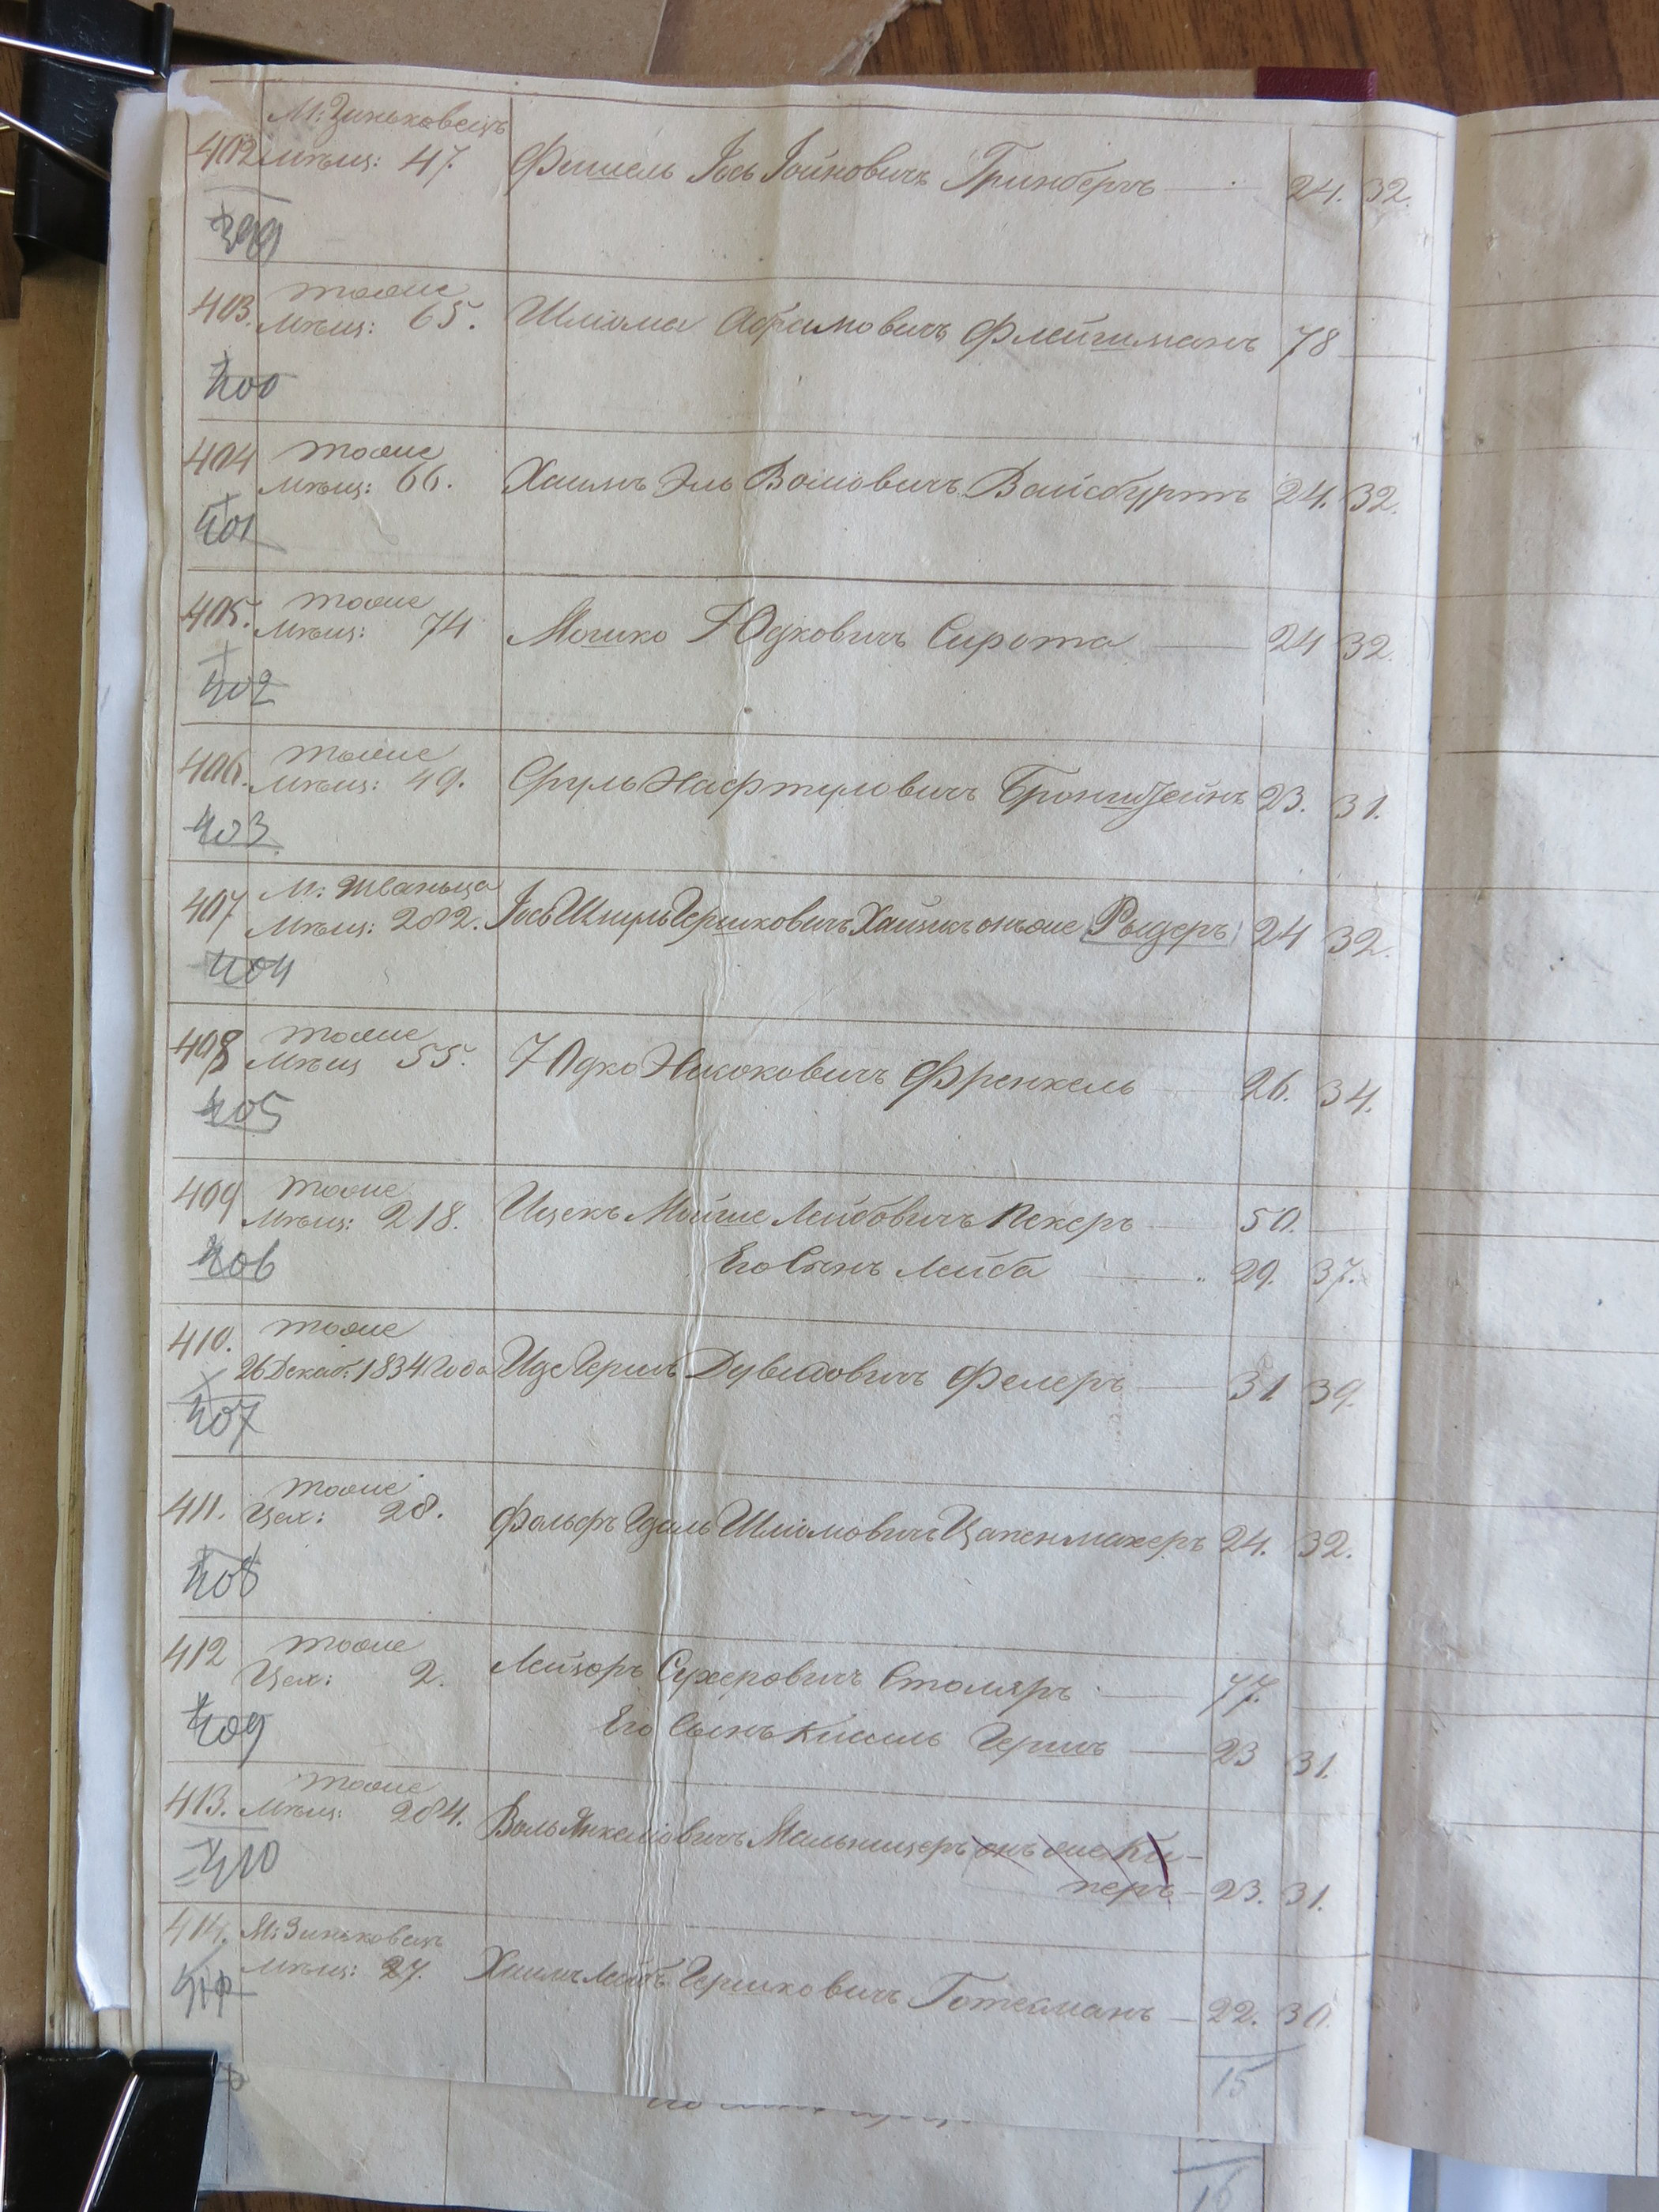 М: Зиньковецъ
402 Мѣщ: 47. Фишель Іось Іойновичъ Гринбергъ 24. 32.
399
403. тоже
Мѣщ: 65. Шліома Абрамовичъ Флейшманъ 78
400
404 тоже
Мѣщ: 66. Хаимъ Эль Воловичъ Вайсбуртъ 24. 32.
401
405. тоже
Мѣщ: 74 Мошко Юдковичъ Сирота 24 32.
402
406. тоже
Мѣщ: 49. Сруль Нафтуловичъ Бронштейнъ 23. 31.
403
407 М: Жваньца
Мѣщ: 282. Іось Шмуль Гершковичъ Хаицкъ онъже Рыдеръ 24 32.
404
408 тоже
Мѣщ 55. Юдко Френкель 26. 34.
405
409 тоже
Мѣщ: 218. Ицекъ Мойше Лейбовичъ Пекеръ 50.
Его Сынъ Лейба 29. 37.
406
410. тоже
26 Декаб: 1834 года Иде Гершъ Дувидовичъ Фелеръ 31 39.
407
411. тоже
Цех: 28. Фольфъ Удель Шліомовичъ Цапенмахеръ 24. 32.
408
412 тоже
Цех: 2. Лейзоръ Сухеровичъ Столяръ 77.
Его Сынъ Кисиль Гершъ 23 31.
409
413. тоже
Мѣщ: 284. Воль Янкеліовичъ Мальницеръ онъ же Ки-
перъ 23. 31.
410
414. М: Зиньковецъ
Мѣщ: 27. Хаимъ Лейбъ Гершковичъ Готесманъ 22. 30.
15